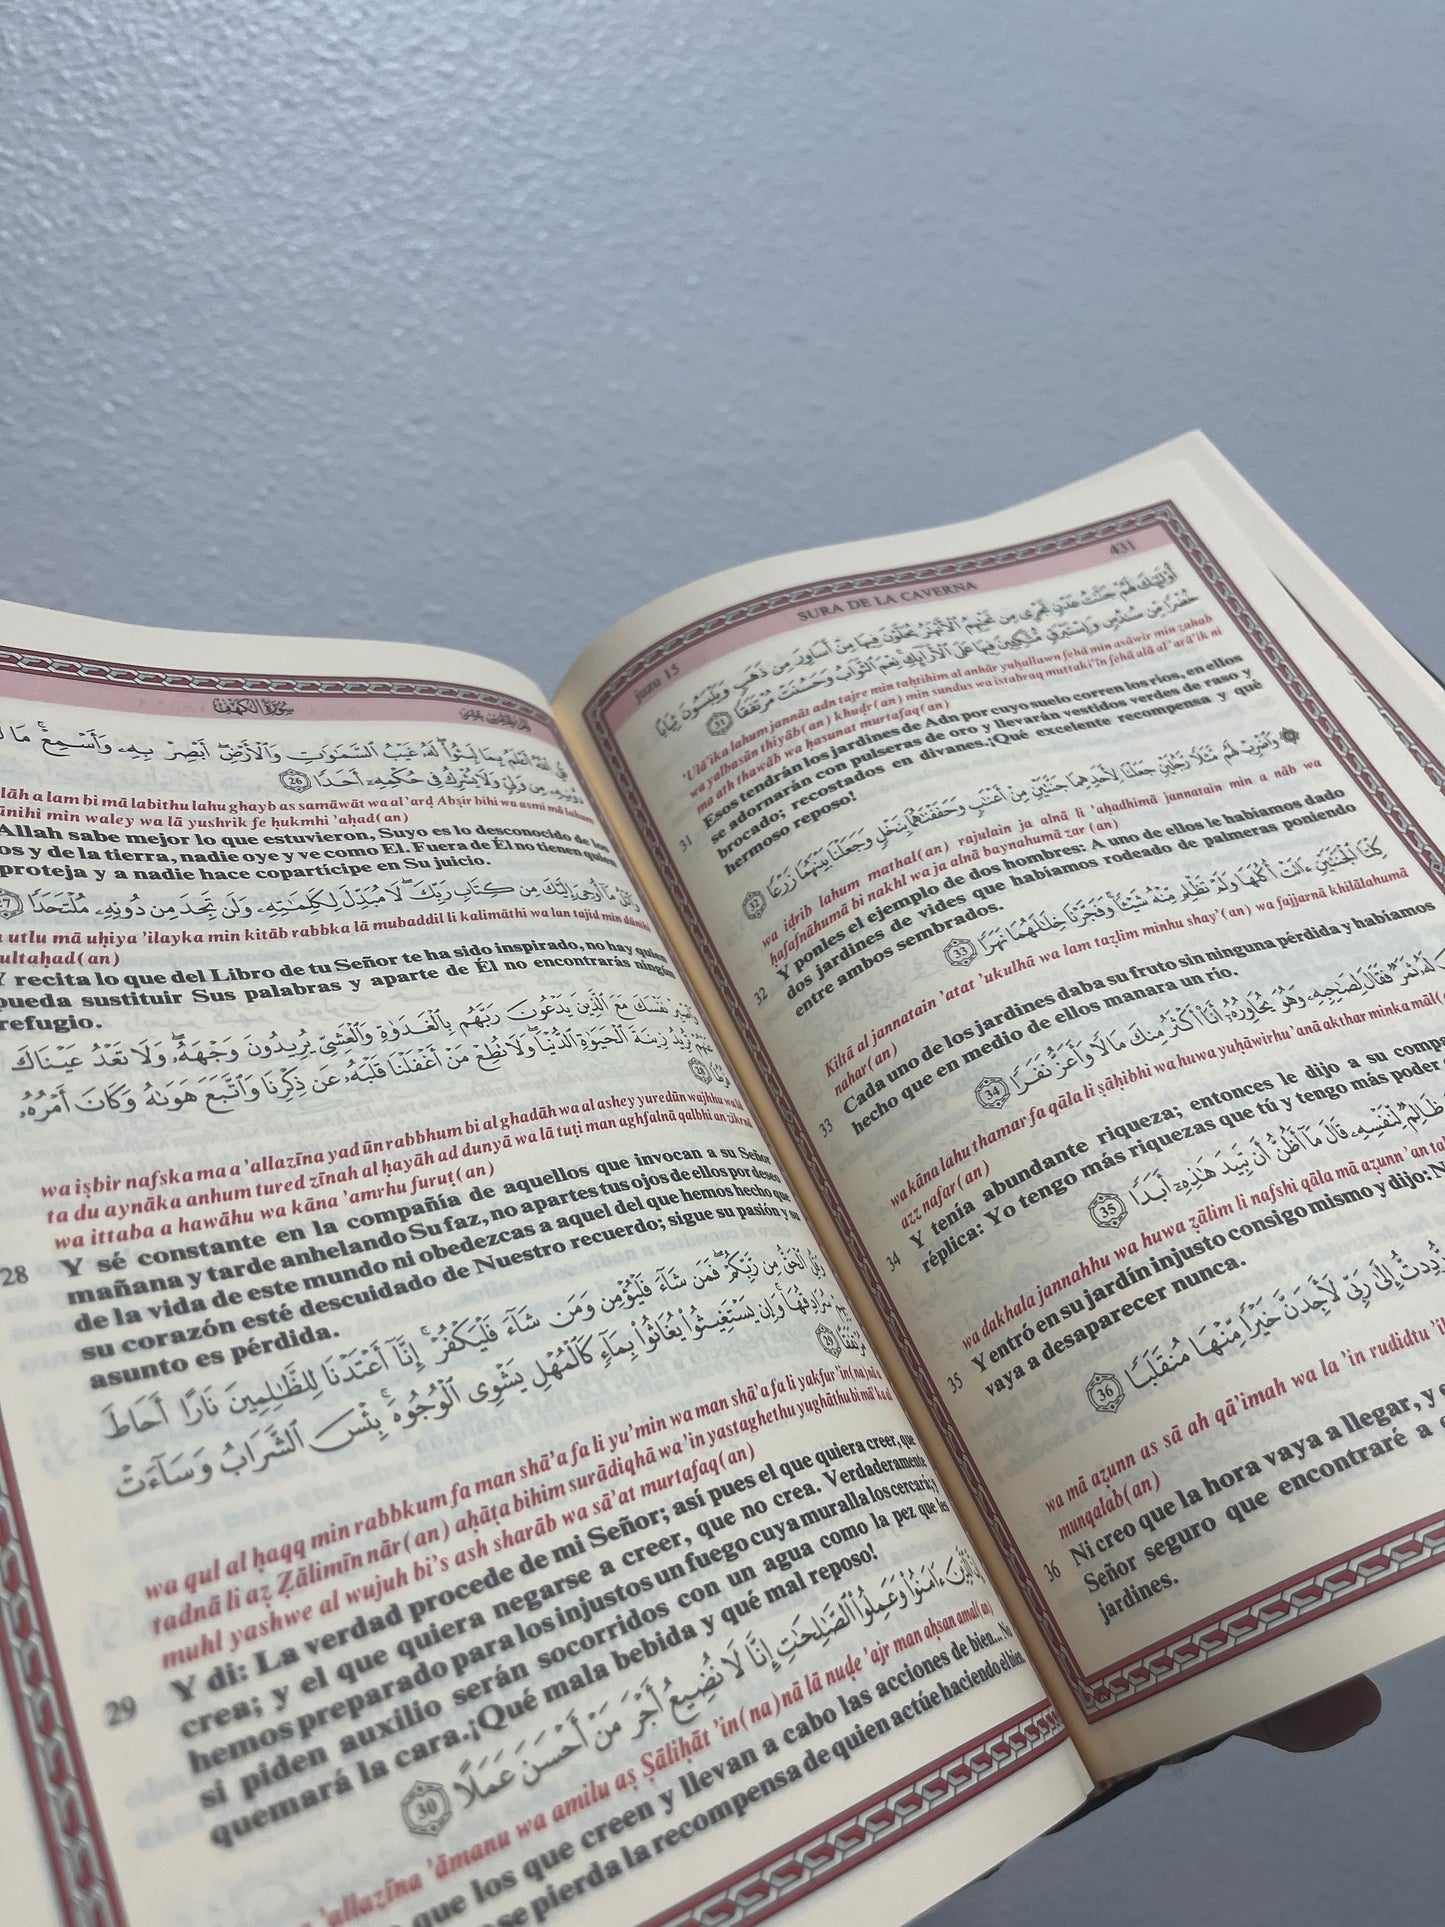 سورة الكهف
قل الله أعلم بما لبثوا له غيب السماوات والأرض أبصر به وأسمع ما
من ولي ولا يشرك في حكمه أحدا 26
lāh a lam bi mā labithu lahu ghayb as samāwāt wa al'arḍ Abṣir bihi wa asmi mā lahum
min waley wa lā yushrik fe ḥukmhi 'aḥad(an)
Allah sabe mejor lo que estuvieron, Suyo es lo desconocido de los
os y de la tierra, nadie oye y ve como El. Fuera de Él no tienen quien
proteja y a nadie hace coparticipe en Su juicio.
واتل ما أوحي إليك من كتاب ربك لا مبدل لكلماته ولن تجد من دونه ملتحدا
utlu mā uḥiya 'ilayka min kitāb rabbka lā mubaddil li kalimāthi wa lan tajid min dūnihi
ultaḥad(an)
Y recita lo que del Libro de tu Señor te ha sido inspirado, no hay quien
pueda sustituir Sus palabras y aparte de Él no encontrarás ningún
refugio.
واصبر نفسك مع الذين يدعون ربهم بالغدوة والعشي يريدون وجهه ولا تعد عيناك
عنهم تريد زينة الحيوة الدنيا ولا تطع من أغفلنا قلبه عن ذكرنا واتبع هوىه وكان أمره
فرطا 28
wa iṣbir nafska ma a 'allaẓīna yad ūn rabbhum bi al ghadāh wa al ashey yuredūn wajhhu wa lā
ta du aynāka anhum tured zīnah al ḥayāh ad dunyā wa lā tuṭi man aghfalnā qalbhi an ẓikrnā
wa ittaba a hawāhu wa kāna 'amrhu furuṭ(an)
28 Y sé constante en la compañía de aquellos que invocan a su Señor
mañana y tarde anhelando Su faz, no apartes tus ojos de ellos por deseo
de la vida de este mundo ni obedezcas a aquel del que hemos hecho que
su corazón esté descuidado de Nuestro recuerdo; sigue su pasión y su
asunto es pérdida.
الحق من ربكم فمن شاء فليؤمن ومن شاء فليكفر إنا أعتدنا للظالمين نارا أحاط
بهم سرادقها وإن يستغيثوا يغاثوا بماء كالمهل يشوي الوجوه بئس الشراب وساءت
مرتفقا 29
wa qul al ḥaqq min rabbkum fa man shā'a fa li yu'min wa man shā'a fa li yakfur 'in(na)nā a
tadnā li aẓ Ẓālimīn nār(an) aḥāṭa bihim surādiqhā wa 'in yastaghethu yughāthu bi mā' ka al
muhl yashwe al wujuh bi's ash sharāb wa sā'at murtafaq(an)
29 Y di: La verdad procede de mi Señor; así pues el que quiera creer, que
crea; y el que quiera negarse a creer, que no crea. Verdaderamente
hemos preparado para los injustos un fuego cuya muralla los cercará; y
si piden auxilio serán socorridos con un agua como la pez que les
quemará la cara.¡Qué mala bebida y qué mal reposo!
الذين ءامنوا وعملوا الصالحات إنا لا نضيع أجر من أحسن عملا 30
'allaẓīna 'āmanu wa amilu aṣ Ṣāliḥāt 'in(na)nā lā nuḍe 'ajr man aḥsan amal(an)
que los que creen y llevan a cabo las acciones de bien... No
se pierda la recompensa de quien actúe haciendo el bien.
juzu 15 SURA DE LA CAVERNA 431
أولئك لهم جنت عدن تجري من تحتهم الأنهر يحلون فيها من أساور من ذهب ويلبسون ثيابا
خضرا من سندس وإستبرق متكئين فيها على الأرائك نعم الثواب وحسنت مرتفقا 31
'Ulā'ika lahum jannāt adn tajre min taḥtihim al anhār yuḥallawn fehā min asāwir min ẓahab
wa yalbasūn thiyāb(an) khuḍr(an) min sundus wa istabraq muttaki'īn fehā alā al'arā'ik ni
ma ath thawāb wa ḥasunat murtafaq(an)
31 Esos tendrán los jardines de Adn por cuyo suelo corren los ríos, en ellos
se adornarán con pulseras de oro y llevarán vestidos verdes de raso y
brocado; recostados en divanes.¡Qué excelente recompensa y qué
hermoso reposo!
واضرب لهم مثلا رجلين جعلنا لأحدهما جنتين من أعنب وحففنهما بنخل وجعلنا بينهما زرعا 32
wa iḍrib lahum mathal(an) rajulain ja alnā li 'aḥadhimā jannatain min a nāb wa
ḥafafnāhumā bi nakhl wa ja alnā baynahumā zar (an)
32 Y ponles el ejemplo de dos hombres: A uno de ellos le habíamos dado
dos jardines de vides que habíamos rodeado de palmeras poniendo
entre ambos sembrados.
كلتا الجنتين ءاتت أكلها ولم تظلم منه شيئا وفجرنا خللهما نهرا 33
Kiltā al jannatain 'atat 'ukulhā wa lam taẓlim minhu shay'(an) wa fajjarnā khilālahumā
nahar(an)
33 Cada uno de los jardines daba su fruto sin ninguna pérdida y habíamos
hecho que en medio de ellos manara un río.
له ثمر فقال لصاحبه وهو يحاوره أنا أكثر منك مالا وأعز نفرا 34
wa kāna lahu thamar fa qāla li ṣāḥibhi wa huwa yuḥāwirhu 'anā akthar minka māl(an)
azz nafar(an)
34 Y tenía abundante riqueza; entonces le dijo a su compa
réplica: Yo tengo más riquezas que tú y tengo más poder
ظالم لنفسه قال ما أظن أن تبيد هذه أبدا 35
wa dakhala jannahhu wa huwa ẓālim li nafshi qāla mā aẓunn 'an ta
35 Y entró en su jardín injusto consigo mismo y dijo: N
vaya a desaparecer nunca.
رددت إلى ربي لأجدن خيرا منها منقلبا 36
wa mā aẓunn as sā ah qā'imah wa la 'in rudidtu 'il
munqalab(an)
36 Ni creo que la hora vaya a llegar, y
Señor seguro que encontraré a
jardines.